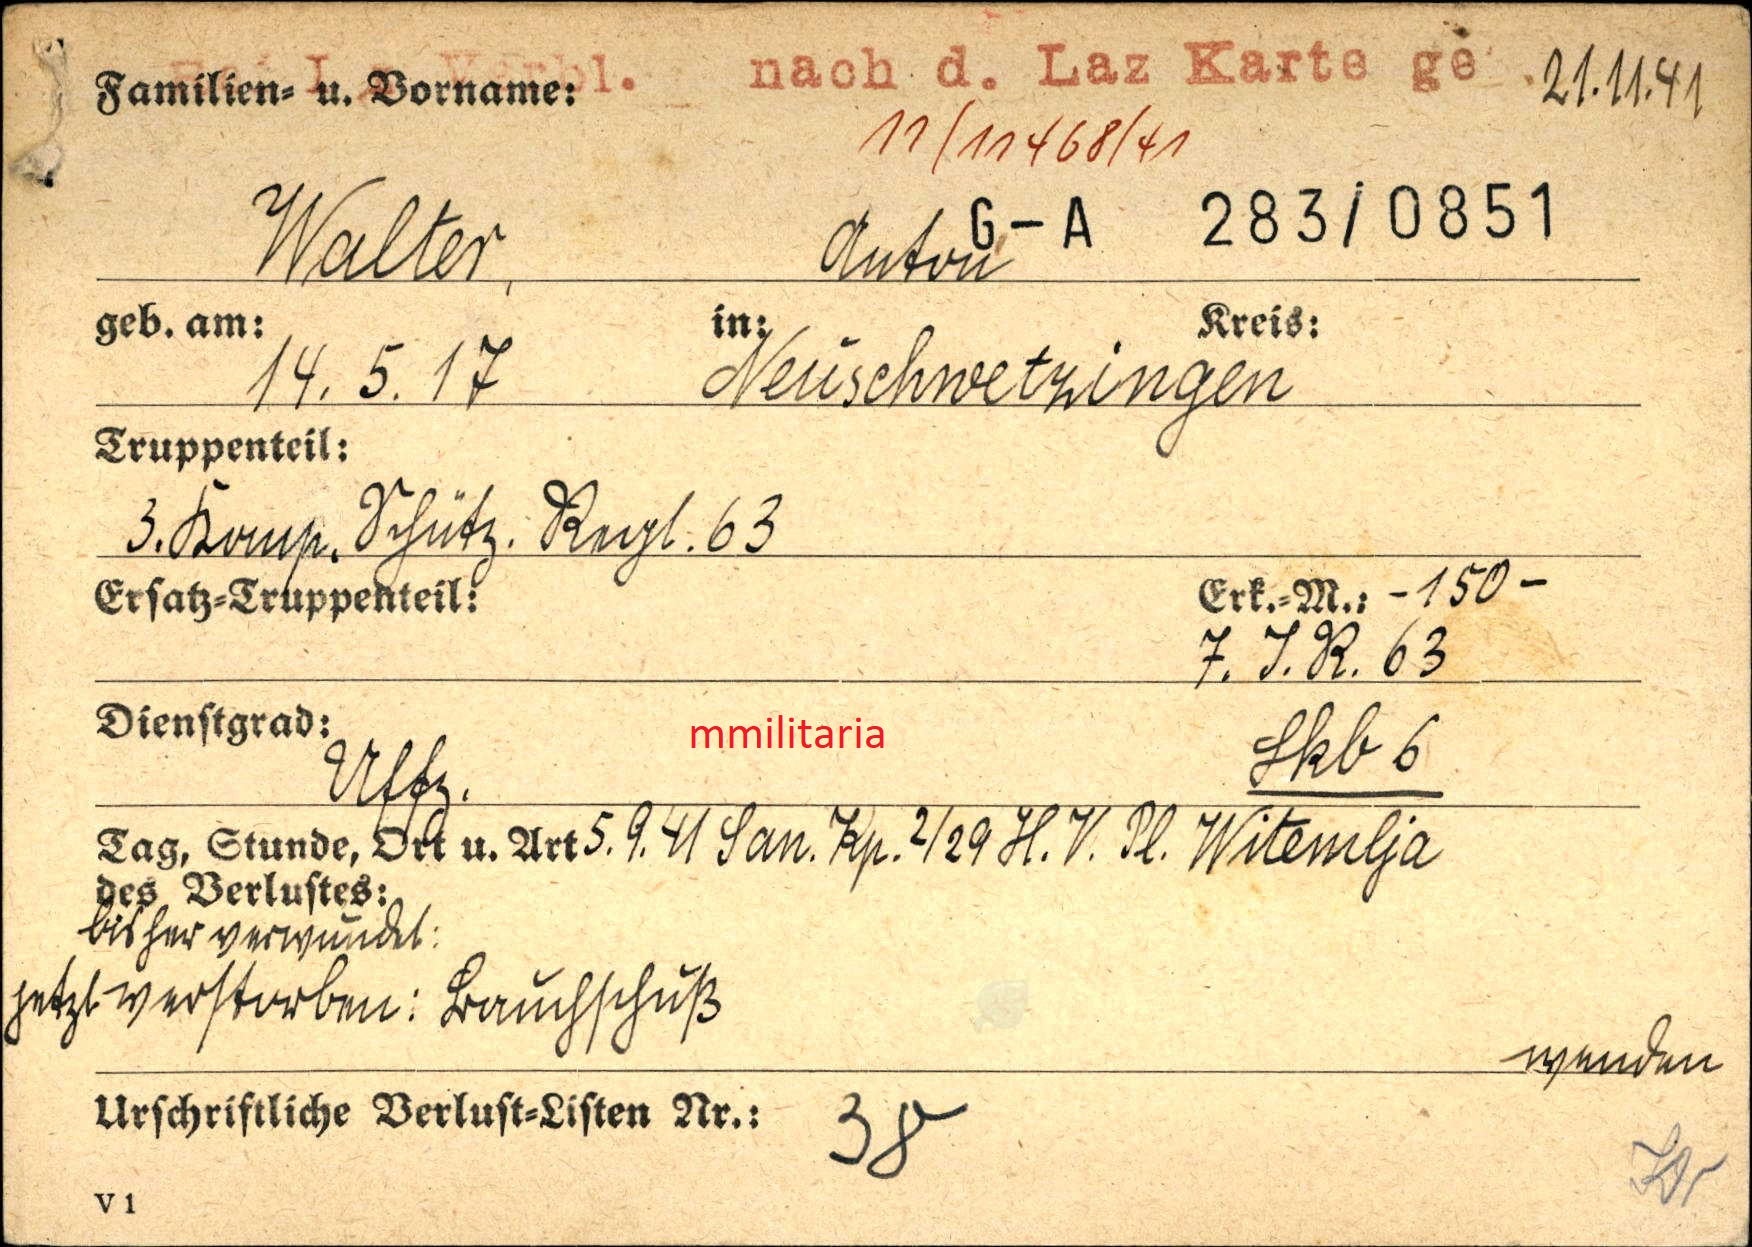 bl. nach d. Laz Karte ge 21.11.41
Familien- u. Vorname:
11/11468/41
G-A 283/0851
Walter, Anton
geb. am: in: Kreis:
14. 5. 17 Neuschwetzingen
Truppenteil:
3. Komp. Schütz. Regt. 63
Ersatz-Truppenteil: Erk.-M.: -150-
7. I.R. 63
Dienstgrad:
mmilitaria
Uffz. Skb 6
Tag, Stunde, Ort u. Art 5.9.41 San. Kp. 2/29 H. V. Pl. Witemlja
des Verlustes:
bisher verwundet:
jetzt verstorben: Bauchschuß
wenden
Urschriftliche Verlust-Listen Nr.: 38
V 1